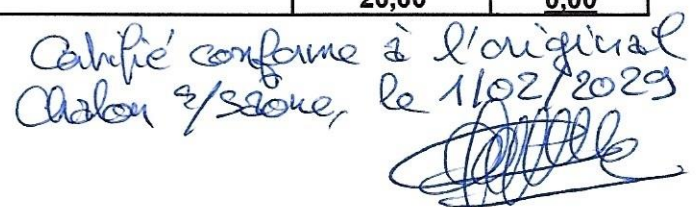 20,00 0,00
Certifié conforme à l'original
Chalon s/Saône, le 1/02/2029